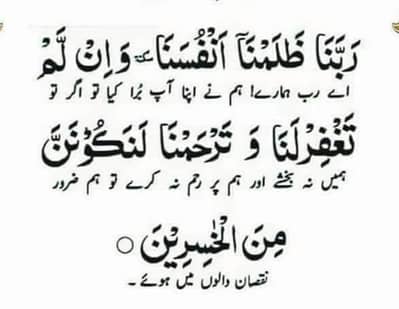 رَبَّنَا ظَلَمْنَآ اَنْفُسَنَا وَاِنْ لَّمْ
اے رب ہمارے! ہم نے اپنا آپ بُرا کیا تو اگر تو
تَغْفِرْلَنَا وَ تَرْحَمْنَا لَنَكُوْنَنَّ
ہمیں نہ بخشے اور ہم پر رحم نہ کرے تو ہم ضرور
مِنَ الْخٰسِرِيْنَ ○
نقصان والوں میں ہوئے ۔